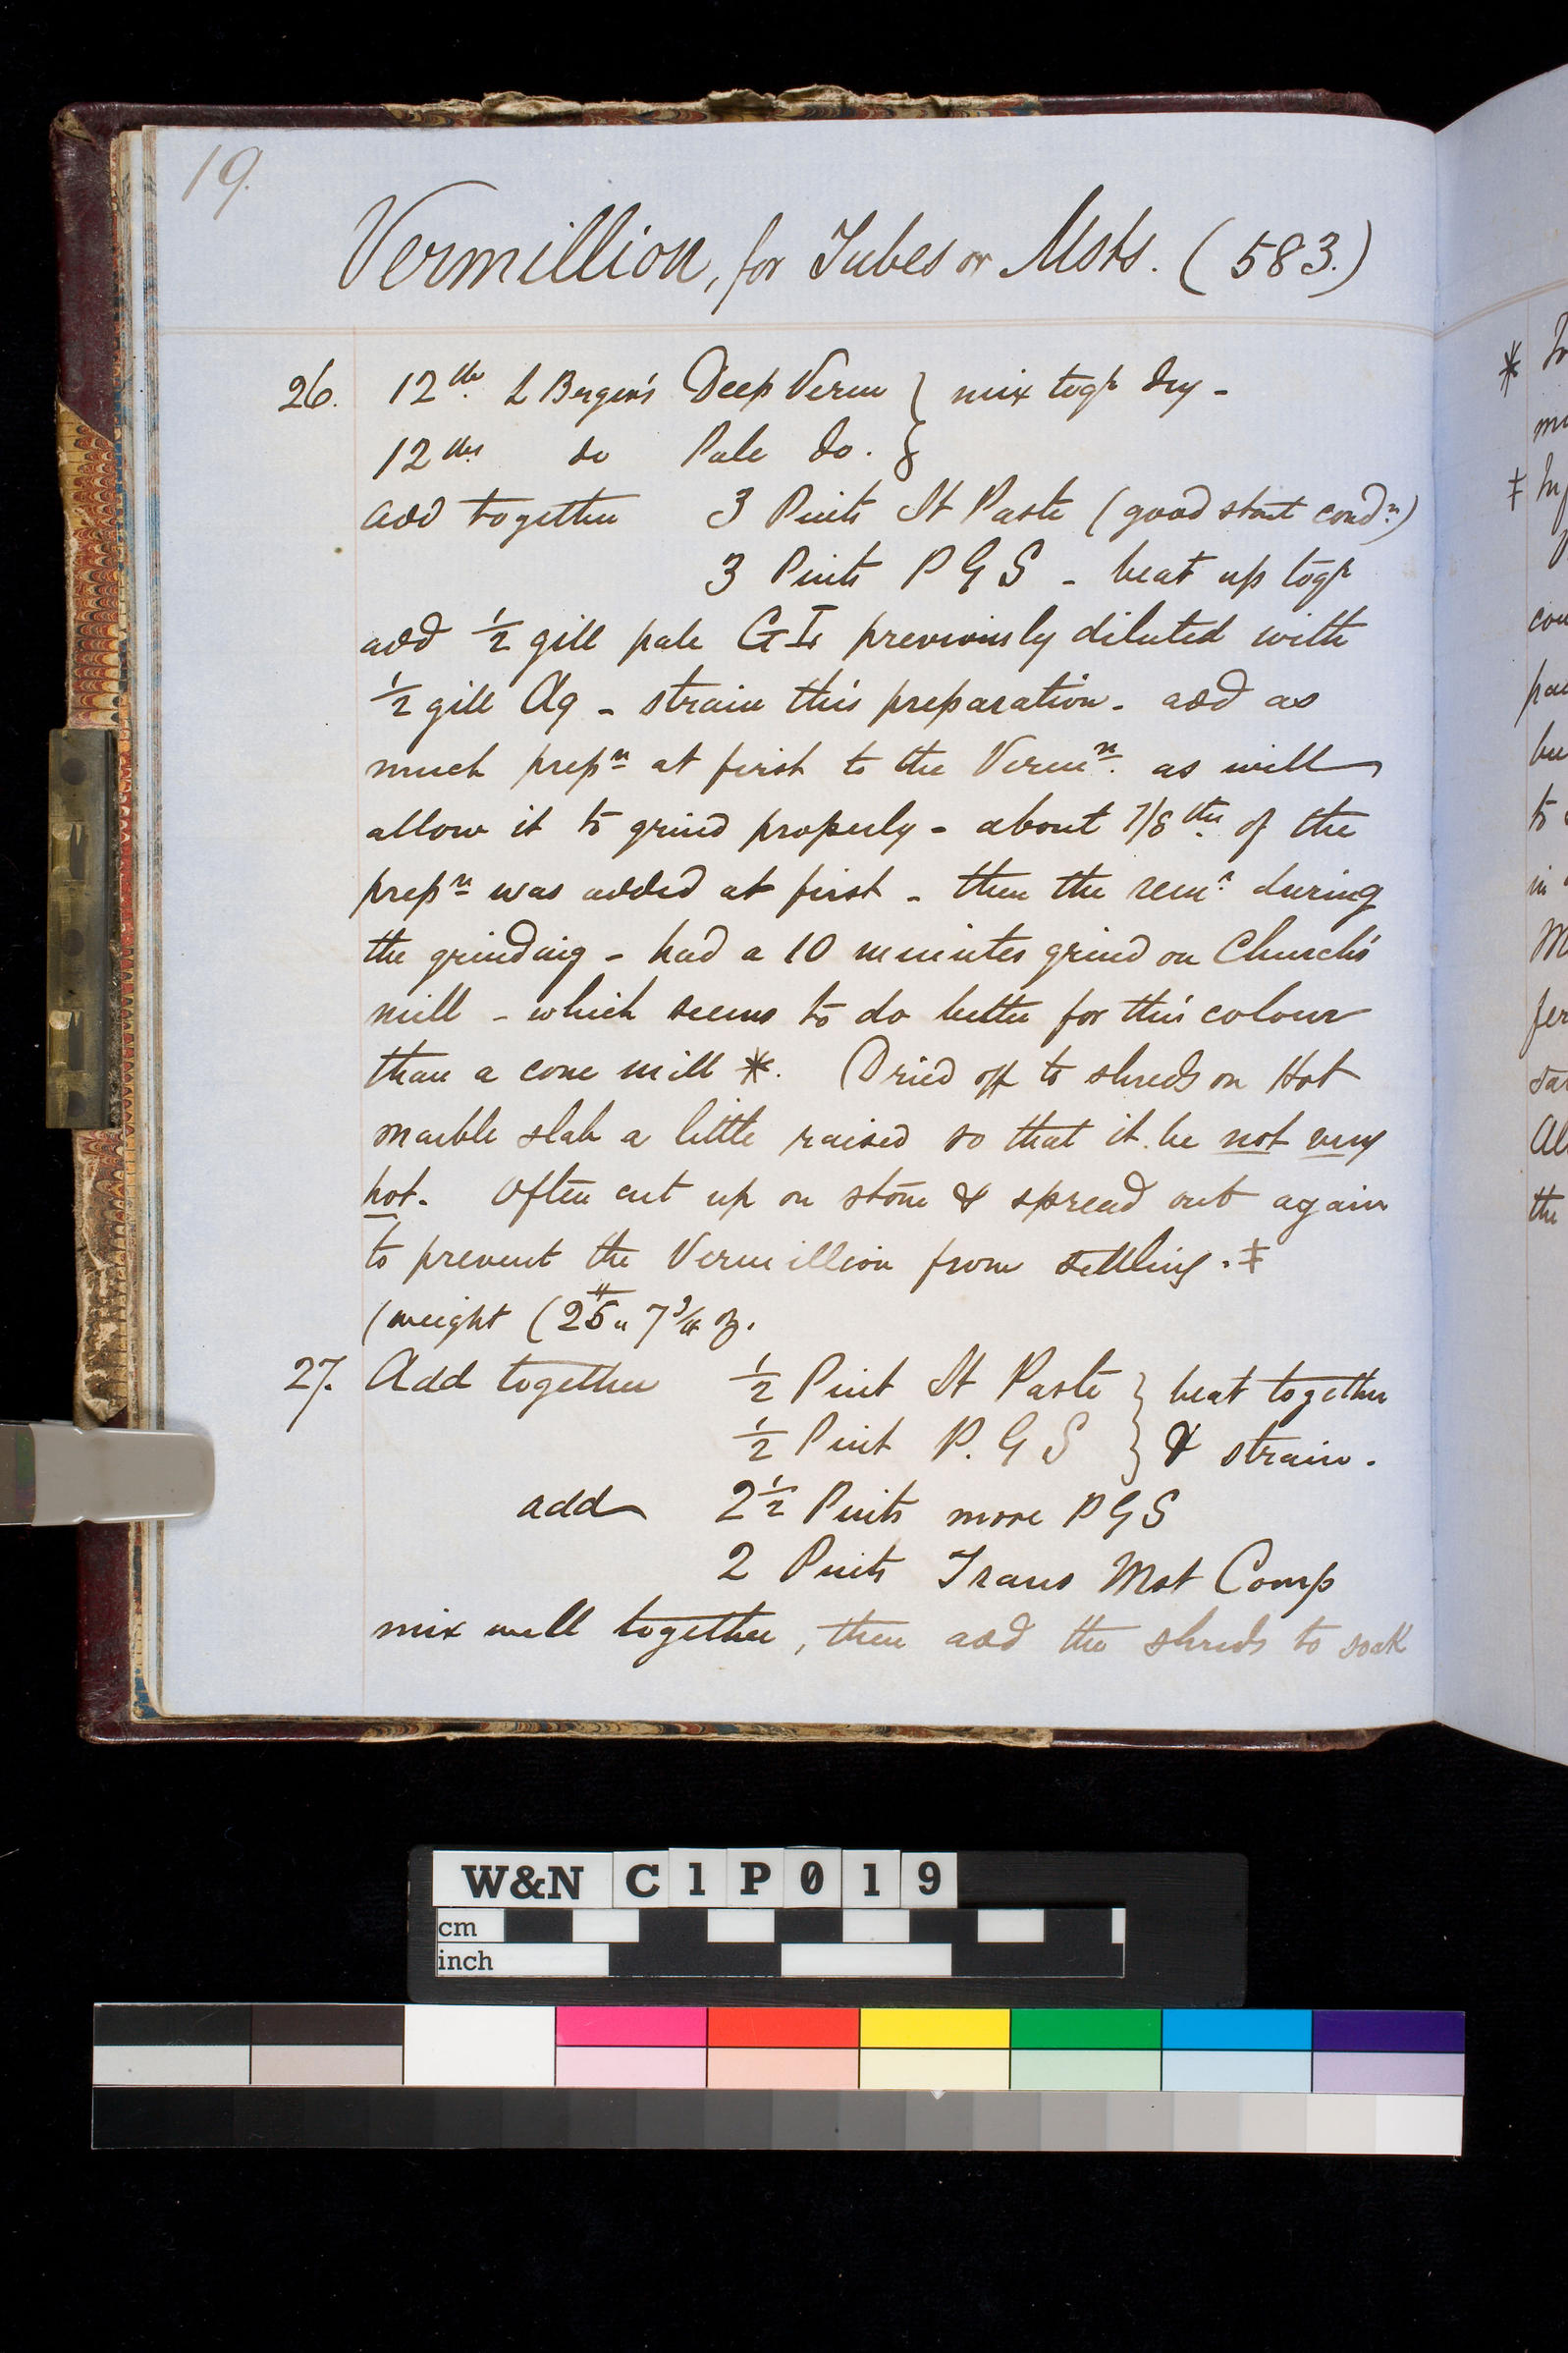 19.
Vermillion, for Tubes or Msts. (583.)
26. 12 lbs. L Berger's Deep Verm } mix togr dry -
12 lbs do Pale do. }
add together 3 Pints St Paste (good stout condn)
3 Pints P G S - beat up togr
add 1/2 gill pale G Ir previously diluted with
1/2 gill Aq - strain this preparation - add as
much prepn at first to the Vermn. as will
allow it to grind properly - about 7/8ths of the
prepn was added at first - then the remr during
the grinding - had a 10 minutes grind on Church's
mill - which seems to do better for this colour
than a cone mill *. Dried off to shreds on Hot
marble slab a little raised so that it be not very
hot. Often cut up on stone & spread out again
to prevent the Vermillion from settling. ‡
(weight (25 # " 7 3/4 oz.
27. Add together 1/2 Pint St Paste } beat together
1/2 Pint P. G S } & strain.
add 2 1/2 Pints more P G S
2 Pints Trans Mst Comp
mix well together, then add the shreds to soak
*
‡
W&N C1P019
cm
inch